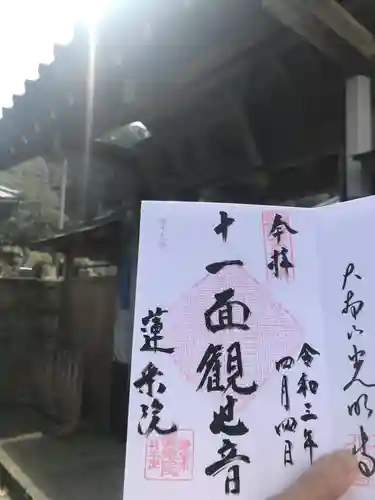 奉拝
十一面観世音
令和三年
四月四日
蓮乗院